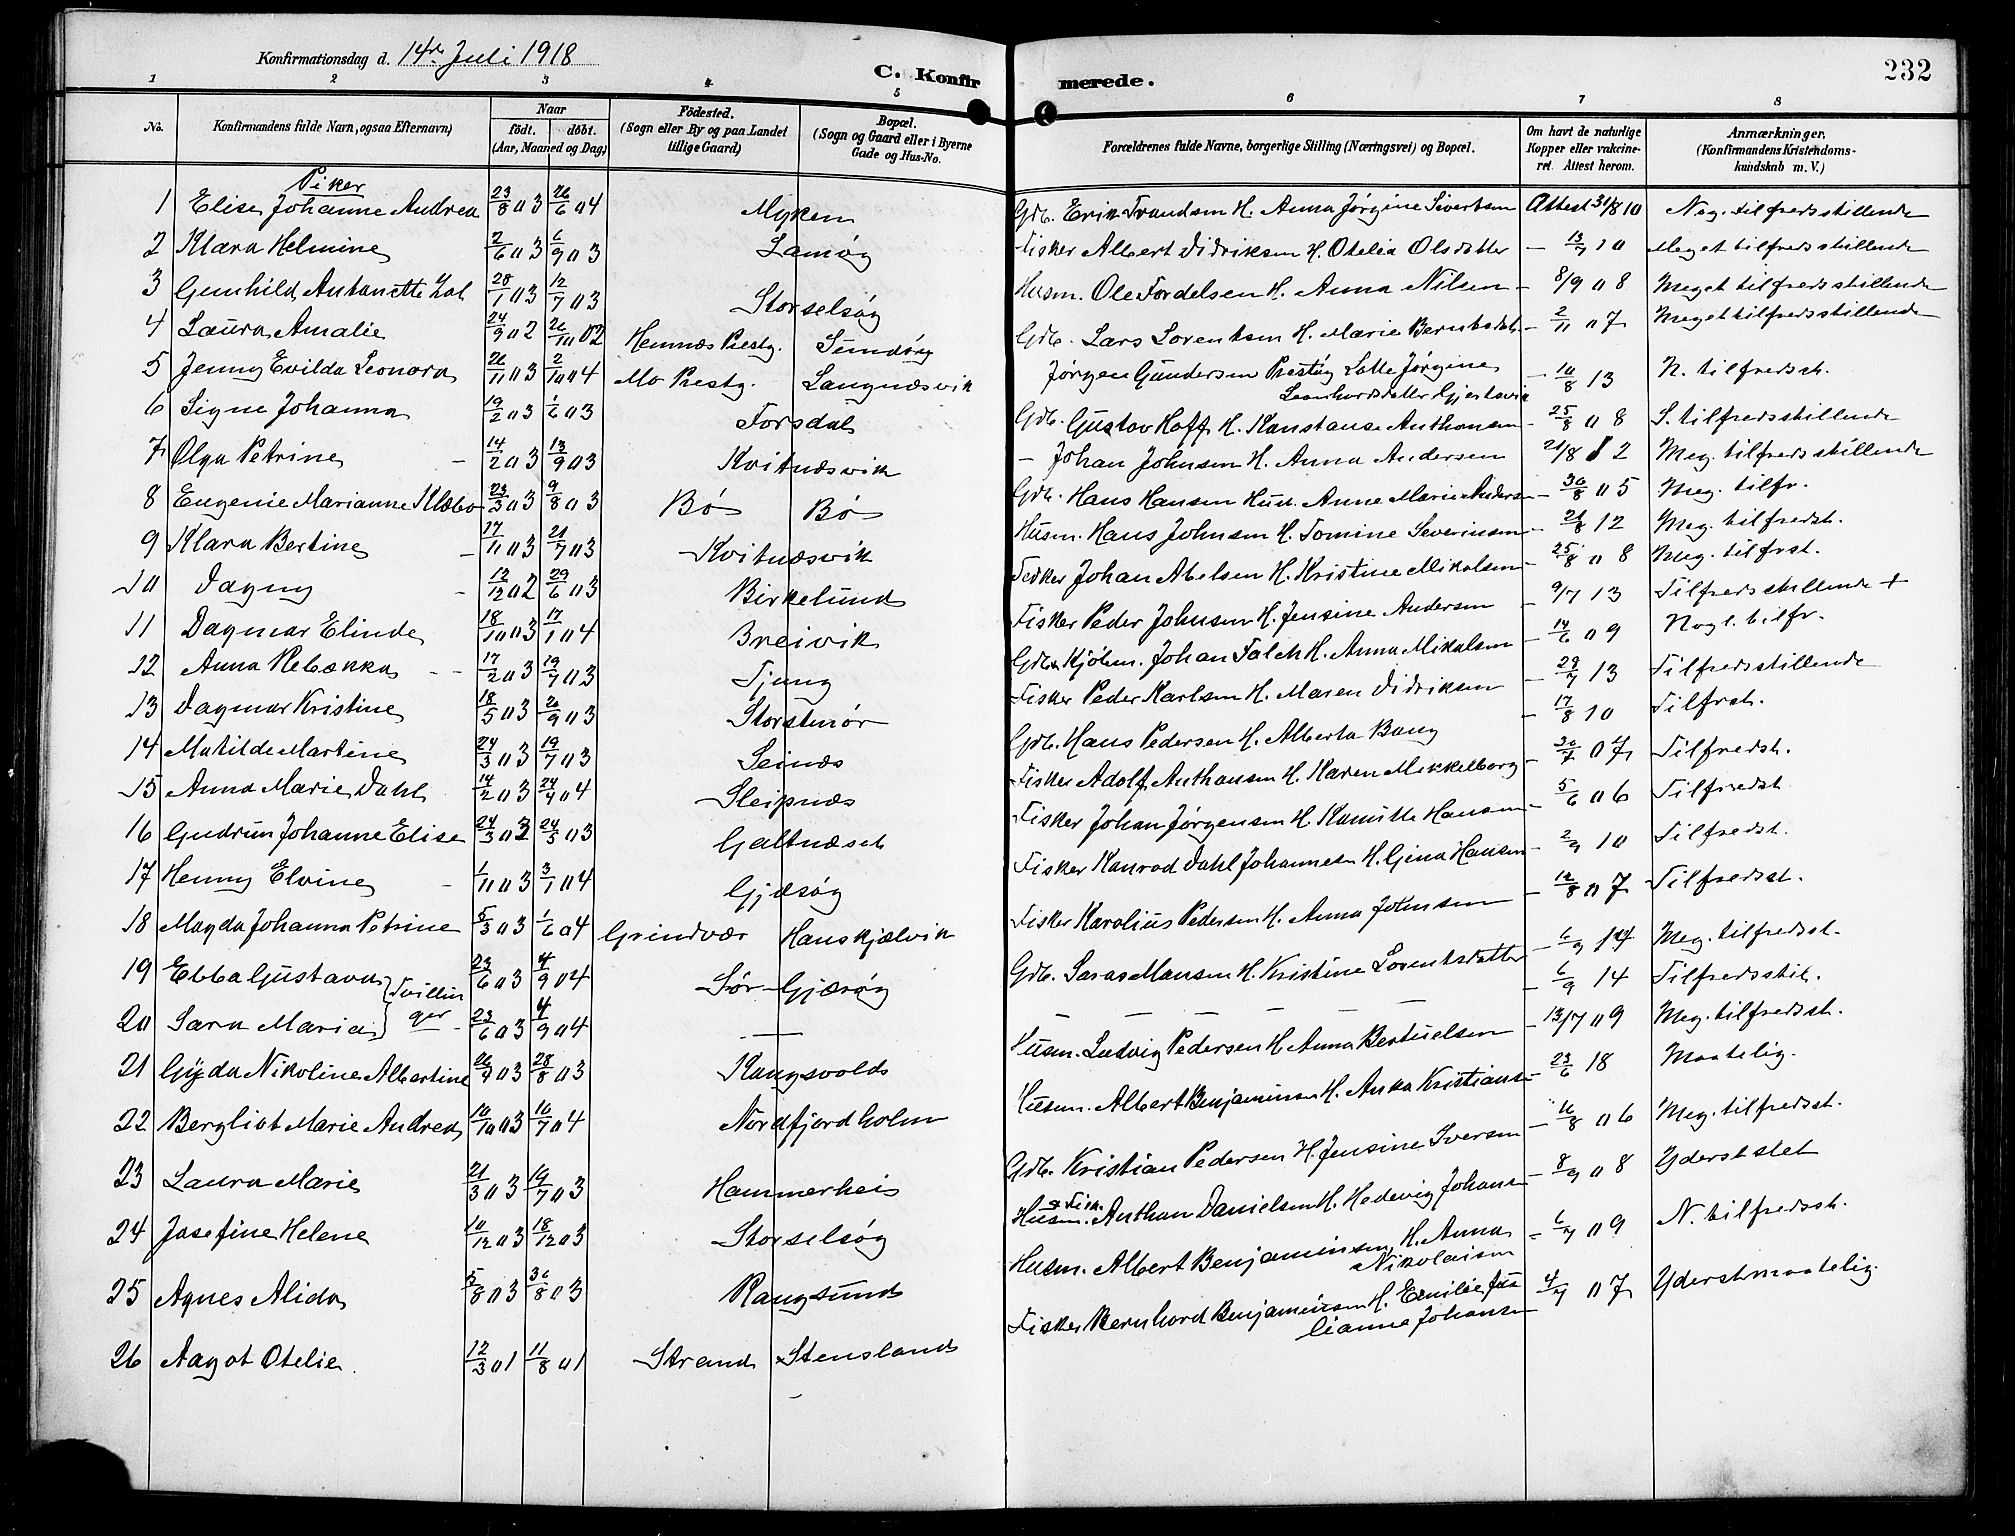 Konfirmationsdag d. 14de Juli 1918
C. Konfirmerede.
232
1 2 3 4 5 6 7 8
No.
Konfirmandens fulde Navn, ogsaa Efternavn)
Naar
født. døbt.
(Aar, Maaned og Dag)
Fødested.
(Sogn eller By og paa Landet
tillige Gaard)
Bopæl.
(Sogn og Gaard eller i Byerne
Gade og Hus-No.
Forældrenes fulde Navne, borgerlige Stilling (Næringsvei) og Bopæl.
Om havt de naturlige
Kopper eller vakcine-
ret. Attest herom.
Anmærkninger,
(Konfirmandens Kristendoms-
kundskab m. V.)
Piker
1 Elise Johanne Andrea 23/8 03 26/6 04 Myken Gdb. Erik Trandsen H. Anna Jørgine Sivertsen Attest 31/8 10 Nog. tilfredsstillende
2 Klara Helmine 2/6 03 6/9 03 Lamøy Fisker Albert Didriksen H. Otelia Olsdatter - 13/7 10 Meget tilfredsstillende
3 Gunhild Antonette 28/1 03 12/7 03 Storselsøy Husm. Ole Tordelsen H. Anna Nilsen - 8/9 08 Meget tilfredsstillende
4 Laura Amalie 24/9 02 26/10 02 Hemnæs Prestg. Sundøy Gdb. Lars Lorentsen H. Marie Berntsdat. - 2/11 07 Meget tilfredsstillende
5 Jenny Evilda Leonora 26/11 03 2/10 04 Mo Prestg. Langnæsvik Jørgen Gundersen Lotte Jørgine
Leonhardsdatter - 10/8 13 N. tilfredsst.
6 Signe Johanna 19/2 03 1/6 03 Forsdal Gdb. Gustav Hoff H. Konstanse Anthonsen - 25/8 08 S. tilfredsstillende
7 Olga Petrine - 14/2 03 13/9 03 Kvitnæsvik - Johan Johnsen H. Anna Andersen 21/8 12 Meg. tilfredsstillende
8 Eugenie Marianne Klæbo 23/3 03 9/8 03 Bø Bø Gdb. Hans Hansen Hus. Anne Marie Andersen - 30/8 05 Meg. tilfr.
9 Klara Bertine - 17/11 03 21/7 03 Kvitnæsvik Husm. Hans Johnsen H. Tomine Severinsen - 21/8 12 Meg. tilfredst.
10 Dagny - 12/12 02 29/6 03 Birkelund Fisker Johan Abelsen H. Kristine Mikalsen - 25/8 08 Meg. tilfrst.
11 Dagmar Elinde 18/10 03 17/1 04 Breivik Fisker Peder Johnsen H. Jensine Andersen - 9/7 13 Tilfredsstillende +
12 Anna Rebækka - - 17/2 03 19/7 03 Tjung Gdb. & Kjøbm. Johan Falch H. Anna Mikalsen - 14/6 09 Nogl. tilfr.
13 Dagmar Kristine 18/5 03 20/9 03 Storstmør Fisker Peder Karlsen H. Maren Didriksen - 29/7 13 Tilfredsstillende
14 Matilde Martine 24/3 03 19/7 03 Seinæs Gdb. Hans Pedersen H. Alberta Bang - 17/8 10 Tilfrst.
15 Anna Marie Dahl 14/2 03 24/4 04 Sleipnæs Fisker Adolf Anthonsen H. Karen Mikkelborg - 30/7 07 Tilfredst.
16 Gudrun Johanne Elise 24/3 02 24/5 03 Galtneset Fisker Johan Jørgensen H. Kamilla Hansen - 5/6 06 Tilfredst.
17 Henny Elvine - 1/11 03 3/1 04 Gjæsøy Fisker Konrad Dahl Johannesen H. Gina Hansen - 2/9 10 Tilfredst.
18 Magda Johanna Petrine 5/3 03 1/6 04 Grindvær Hanskjælvik Fisker Karolius Pedersen H. Anna Johnsen - 12/8 07 Tilfredsst.
19 Ebba Gustava } Tvillin 23/6 03 4/9 04 Sør-Gjærøy Gdb. Saras Mansen H. Kristine Lorentsdatter - 6/9 14 Meg. tilfredsst.
20 Sara Maria } ger - 23/6 03 4/9 04 — — — — — — 6/9 14 Tilfredsstil.
21 Gyda Nikoline Albertine 26/4 03 28/8 03 Rangsvolds Husm. Ludvig Pedersen H. Anna Bertuelsen - 13/7 09 Meg. tilfredsst.
22 Bergliot Marie Andrea 10/10 03 10/7 04 Nordfjordholm Husm. Albert Benjaminsen H. Anna Kristianse - 23/6 18 Maatelig.
23 Laura Marie 21/3 03 19/7 03 Hammerheis Gdb. Kristian Pedersen H. Jensine Iversen - 16/8 06 Meg. tilfredsst.
24 Josefine Helene 10/12 03 18/12 03 Storselsøy Husm. & Fisk. Anthon Danielsen H. Hedevig Johans - 8/9 08 Yderst slet
25 Agnes Alida 5/8 03 30/8 03 Rangsund Husm. Albert Benjaminsen H. Anna
Nikolaisen - 6/7 09 N. tilfredsst.
26 Aagot Otelie 12/3 01 11/8 01 Strand Stensland Fisker Bernhard Benjaminsen H. Emilie Jus
cianna Johansen - 4/7 07 Yderst maatelig